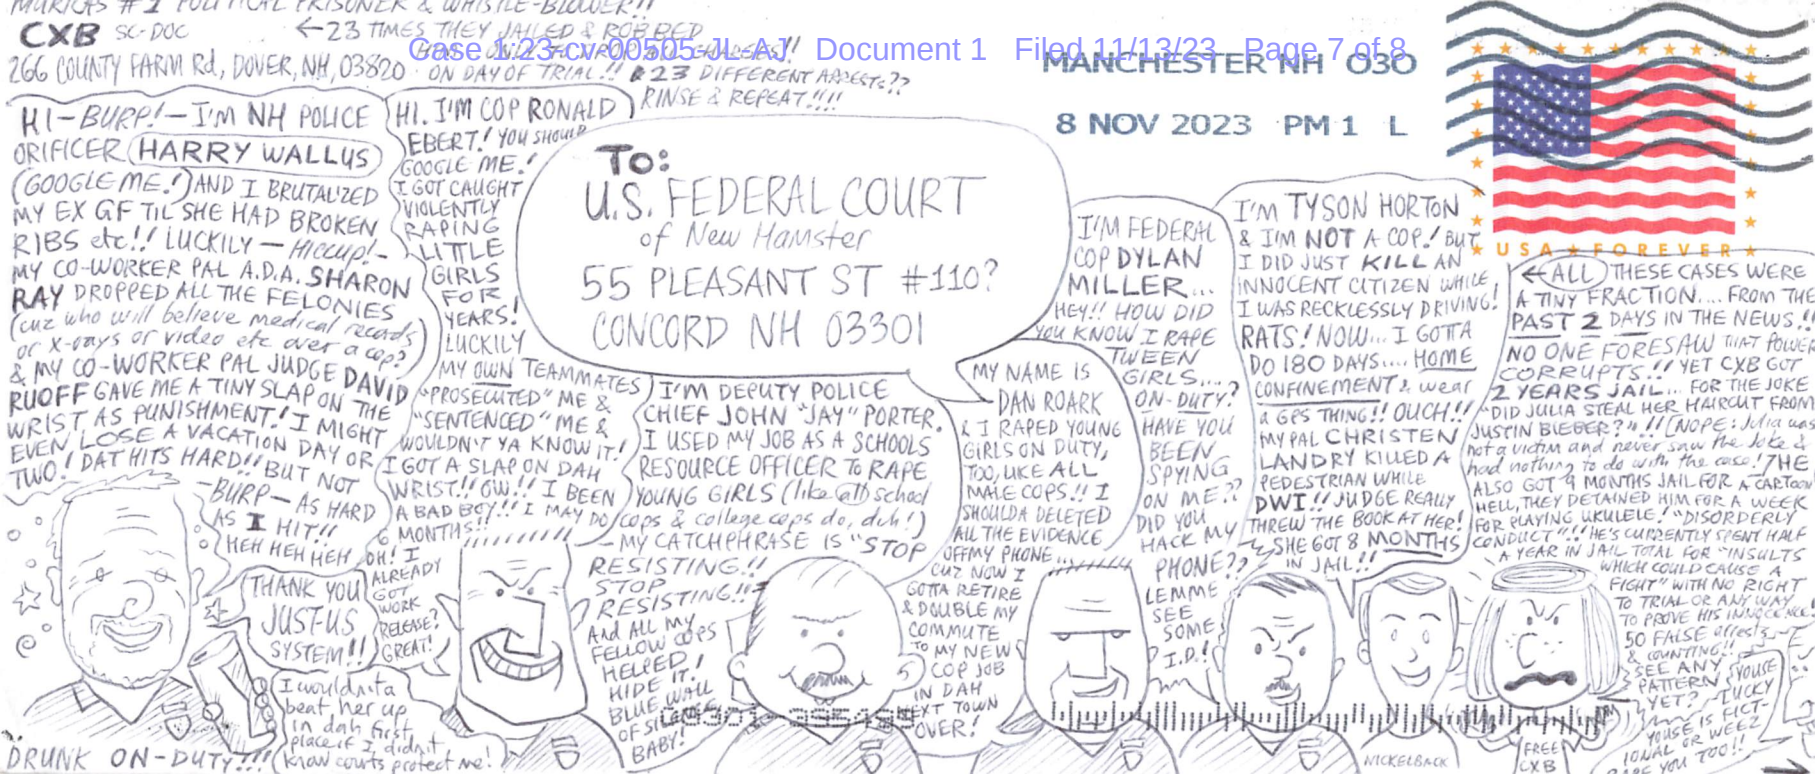 MURICAS #1 POLITICAL PRISONER & WHISTLE-BLOWER!!
CXB SC-DOC
266 COUNTY FARM Rd, DOVER, NH, 03820
←23 TIMES THEY JAILED & ROBBED
ON DAY OF TRIAL!! & 23 DIFFERENT ARRESTS??
RINSE & REPEAT!!!!
Case 1:23-cv-00505-JL-AJ Document 1 Filed 11/13/23 Page 7 of 8
MANCHESTER NH 030
8 NOV 2023 PM 1 L
USA FOREVER
To:
U.S. FEDERAL COURT
of New Hamster
55 PLEASANT ST #110?
CONCORD NH 03301
HI-BURP!-I'M NH POLICE
ORIFICER HARRY WALLUS
(GOOGLE ME!) AND I BRUTALIZED
MY EX GF TIL SHE HAD BROKEN
RIBS etc!! LUCKILY - HICCUP!-
MY CO-WORKER PAL A.D.A. SHARON
RAY DROPPED ALL THE FELONIES
(cuz who will believe medical records
or x-rays or video etc over a cop?
& MY CO-WORKER PAL JUDGE DAVID
RUOFF GAVE ME A TINY SLAP ON THE
WRIST AS PUNISHMENT! I MIGHT
EVEN LOSE A VACATION DAY OR
TWO! DAT HITS HARD!! BUT NOT
-BURP- AS HARD
AS I HIT!!
HEH HEH HEH
THANK YOU
JUST-US
SYSTEM!!
I wouldnta
beat her up
in dah first
place if I didn't
know courts protect me!
DRUNK ON-DUTY!!!!
HI. I'M COP RONALD
EBERT! YOU SHOULD
GOOGLE ME!
I GOT CAUGHT
VIOLENTLY
RAPING
LITTLE
GIRLS
FOR
YEARS!
LUCKILY
MY OWN TEAMMATES
"PROSECUTED" ME &
"SENTENCED" ME &
WOULDN'T YA KNOW IT!
I GOT A SLAP ON DAH
WRIST!! OW!! I BEEN
A BAD BOY!!! I MAY DO
6 MONTHS!!
OH! I
ALREADY
GOT
WORK
RELEASE?
GREAT!
I'M DEPUTY POLICE
CHIEF JOHN "JAY" PORTER.
I USED MY JOB AS A SCHOOLS
RESOURCE OFFICER To RAPE
YOUNG GIRLS (like all school
cops & college cops do, duh!)
-MY CATCHPHRASE IS "STOP
RESISTING!!
STOP
RESISTING!!"
And ALL MY
FELLOW COPS
HELPED
HIDE IT!
BLUE WALL
BABY!
MY NAME IS
DAN ROARK
& I RAPED YOUNG
GIRLS ON DUTY,
TOO, LIKE ALL
MALE COPS!! I
SHOULDA DELETED
ALL THE EVIDENCE
OFF MY PHONE
CUZ NOW I
GOTTA RETIRE
& DOUBLE MY
COMMUTE
TO MY NEW
COP JOB
IN DAH
NEXT TOWN
OVER!
I'M FEDERAL
COP DYLAN
MILLER...
HEY!! HOW DID
YOU KNOW I RAPE
TWEEN
GIRLS...
ON-DUTY?
HAVE YOU
BEEN
SPYING
ON ME??
DID YOU
HACK MY
PHONE??
LEMME
SEE
SOME
I.D.!
I'M TYSON HORTON
& I'M NOT A COP! BUT
I DID JUST KILL AN
INNOCENT CITIZEN WHILE
I WAS RECKLESSLY DRIVING!
RATS! NOW... I GOTTA
DO 180 DAYS.... HOME
CONFINEMENT & wear
a GPS THING!! OUCH!!
MY PAL CHRISTEN
LANDRY KILLED A
PEDESTRIAN WHILE
DWI!! JUDGE REALLY
THREW THE BOOK AT HER!
SHE GOT 8 MONTHS
IN JAIL!!
NICKELBACK
← ALL THESE CASES WERE
A TINY FRACTION.... FROM THE
PAST 2 DAYS IN THE NEWS!!
NO ONE FORESAW THAT POWER
CORRUPTS!! YET CXB GOT
2 YEARS JAIL... FOR THE JOKE
"DID JULIA STEAL HER HAIRCUT FROM
JUSTIN BIEBER?"!! (NOPE: Julia was
not a victim and never saw the Joke &
had nothing to do with the case! THE
ALSO GOT 9 MONTHS JAIL FOR A CARTOON
HELL, THEY DETAINED HIM FOR A WEEK
FOR PLAYING UKULELE! "DISORDERLY
CONDUCT"!!! HE'S CURRENTLY SPENT HALF
A YEAR IN JAIL TOTAL FOR "INSULTS
WHICH COULD CAUSE A
FIGHT" WITH NO RIGHT
TO TRIAL OR ANY WAY
TO PROVE HIS INNOCENCE!
50 FALSE arrests
& COUNTING!!
SEE ANY
PATTERN
YET?
FREE
CXB
YOUSE
LUCKY